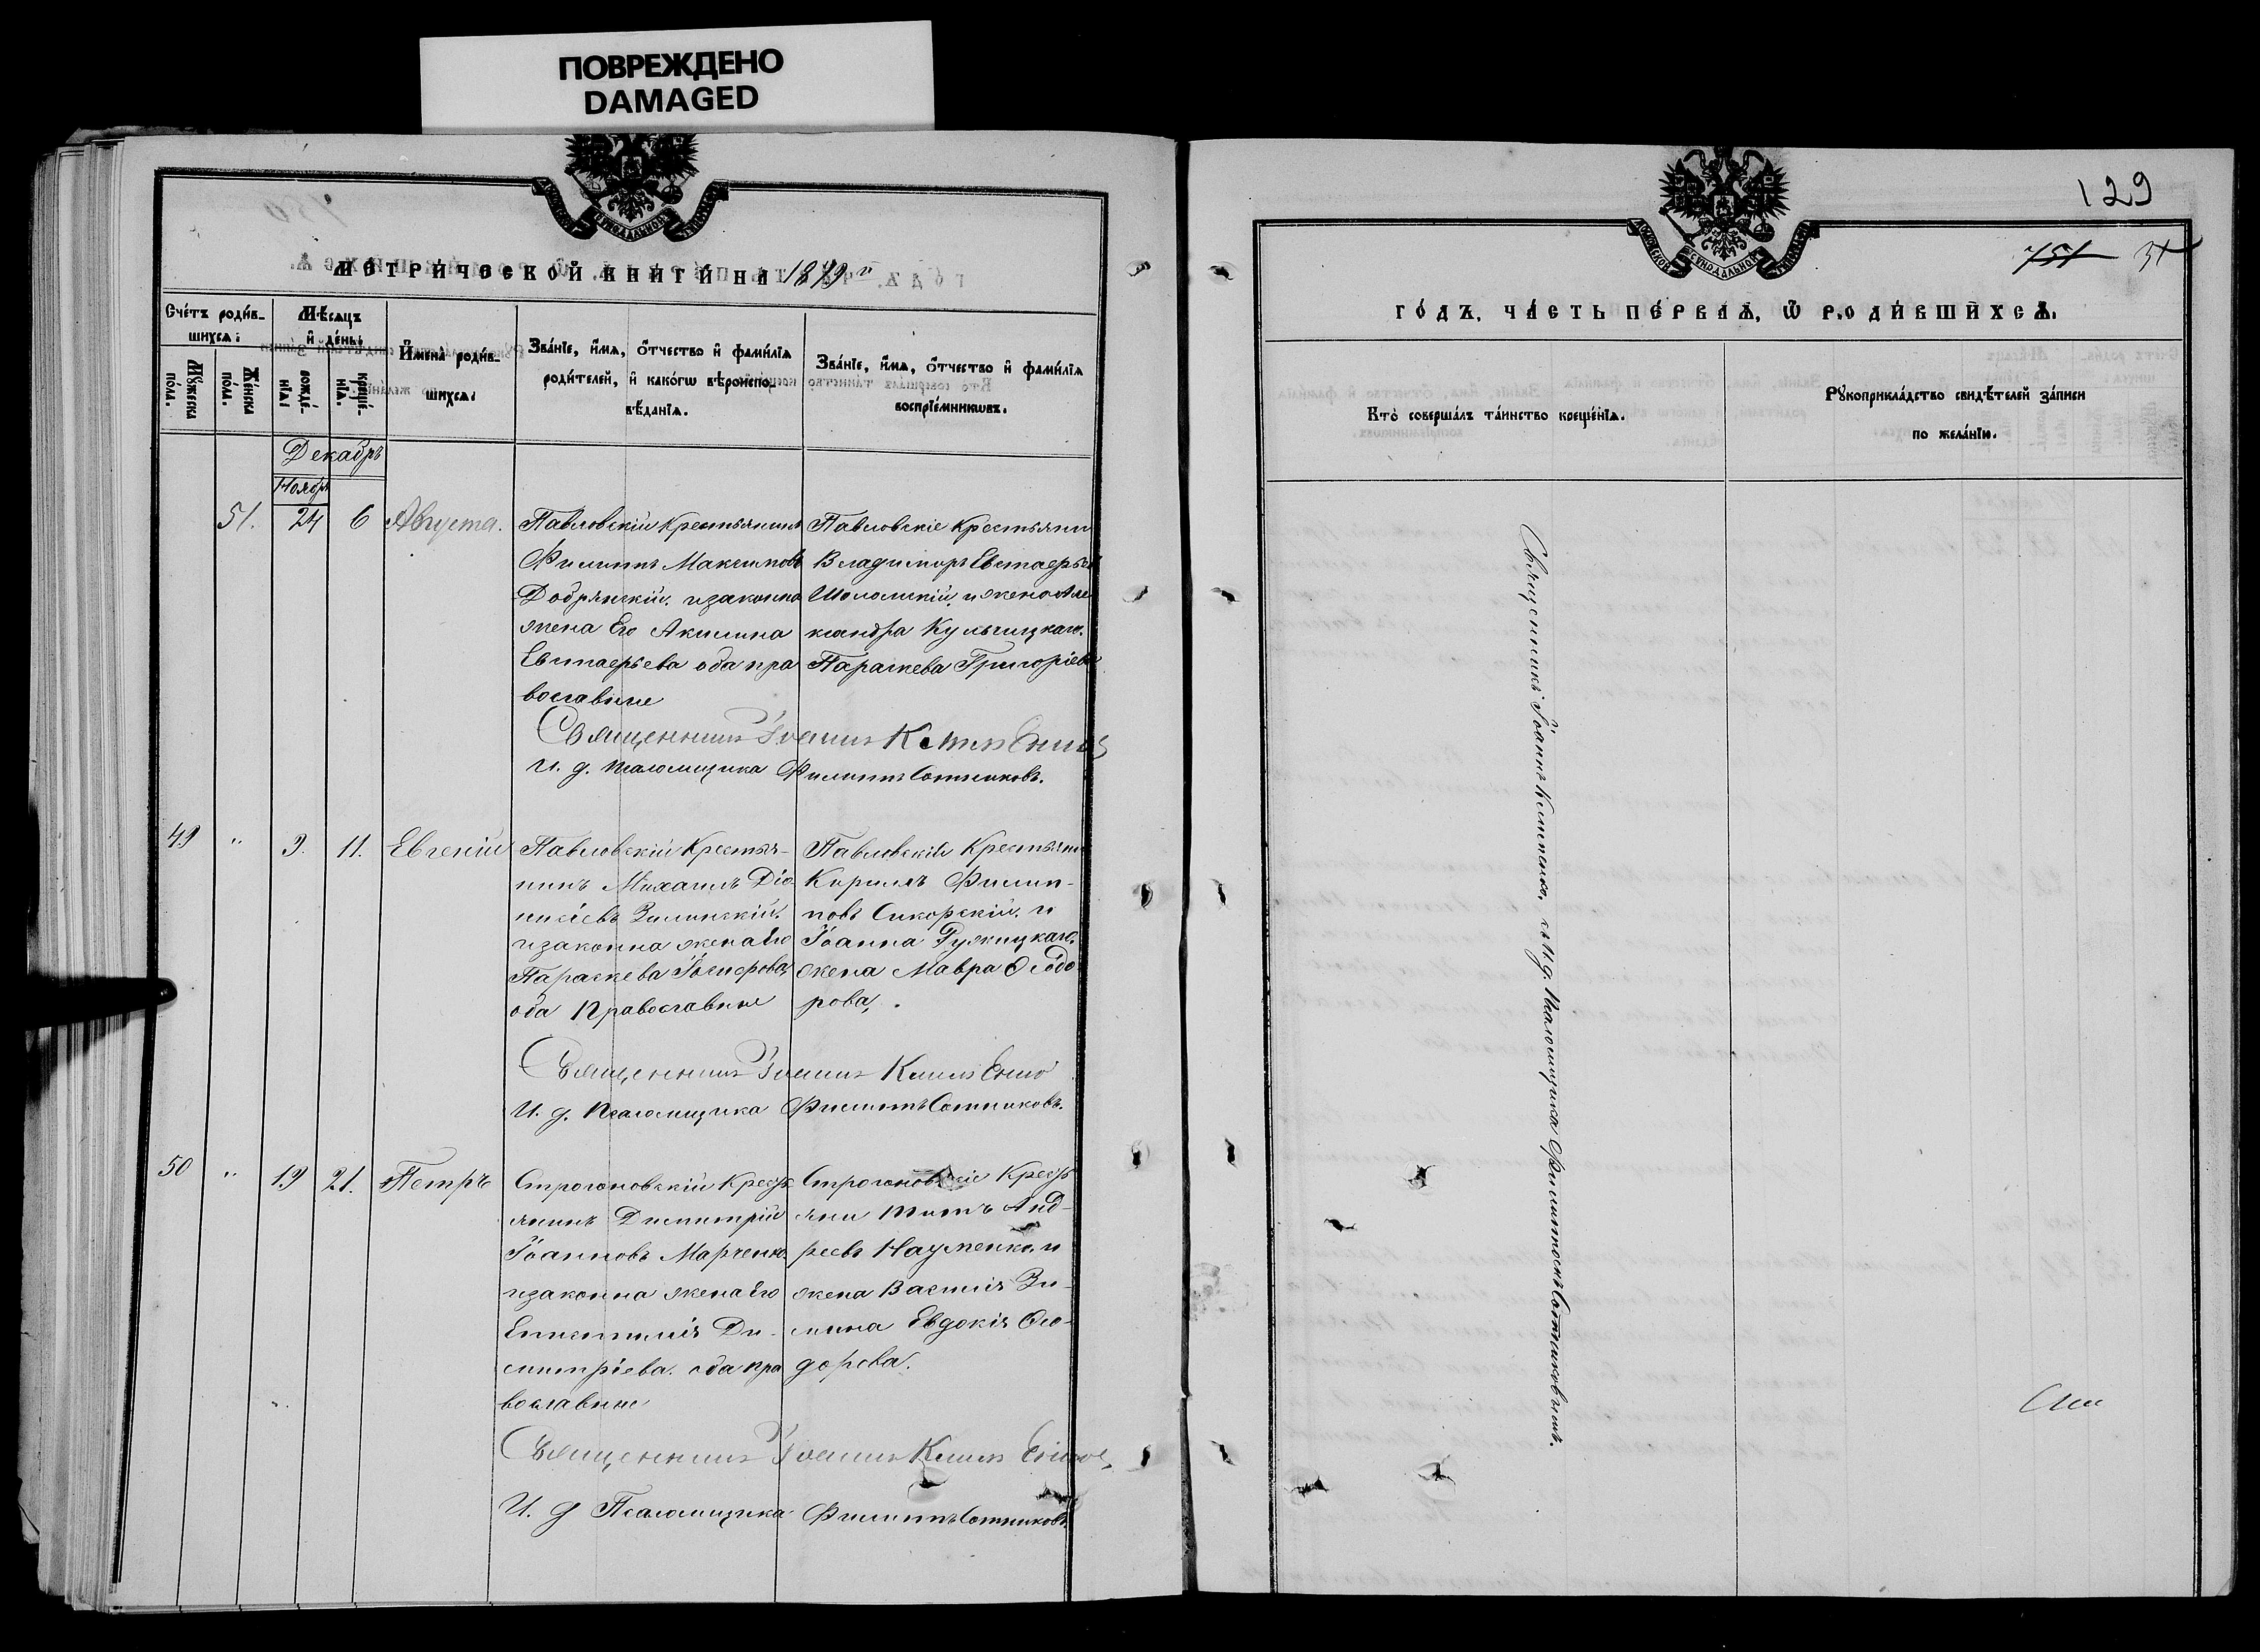 ПОВРЕЖДЕНО
DAMAGED
МЕТРИЧЕСКОЙ КНИГИ НА 1879й
Счетъ родив-
шихся:
Мужеска пола.
Женска пола.
Мѣсяцъ
и день:
рождения:
крещения.
Имена родив-
шихся:
Званіе, имя, отчество и фамилія
родителей, и какогѡ вѣроиспо-
вѣданія.
Званіе, имя, отчество и фамилія
воспріемникѡвъ.
Декабрь
Ноябрь
51. 24 6 Августа.
Павловскій Крестьянинъ
Филиппъ Максимовъ
Добрянскій, и законна
жена Его Акилина
Евстаѳьева оба пра
вославные
Павловскіе Крестьяни
Владиміръ Евстаѳьев
Шоломскій, и жена Але
ксандра Кульчицкаго.
Параскева Григоріева
Священникъ Іоаннъ
И. д. псаломщика Филиппъ Сотниковъ.
49 " 9. 11. Евгеній
Павловскій Крестья-
нинъ Михаилъ Діо
нисіевъ Зилинскій.
и законна жена Его
Параскева
оба Православные
Павловскій Крестьяни
Кирилъ Филип-
повъ Сикорскій. и
Іоанна Ружицкаго.
жена Мавра Ѳеодо
рова,.
Священникъ Іоаннъ
И. д. Псаломщика Филиппъ Сотниковъ.
50 " 19 21. Петръ
Строгоновскій Кресть
янинъ Димитрій
Іоанновъ Марченко
и законна жена Его
Епистимія Ди-
митріева. оба пра
вославные
Строгоновскіе Кресть
яни Титъ Анд-
реевъ Науменко, и
жена Василія Зи-
мина Евдокія Ѳео-
дорова.
Священникъ Іоаннъ
И. д Псаломщика Филиппъ Сотниковъ
129
751 51
ГОДЪ, ЧАСТЬ ПЕРВАЯ, Ѡ РОДИВШИХСЯ.
Кто совершалъ таинство крещенія.
Рукоприкладство свидѣтелей записи
по желанію.
Священникъ Іоаннъ съ И. д. Псаломщика Филиппомъ Сотниковымъ.